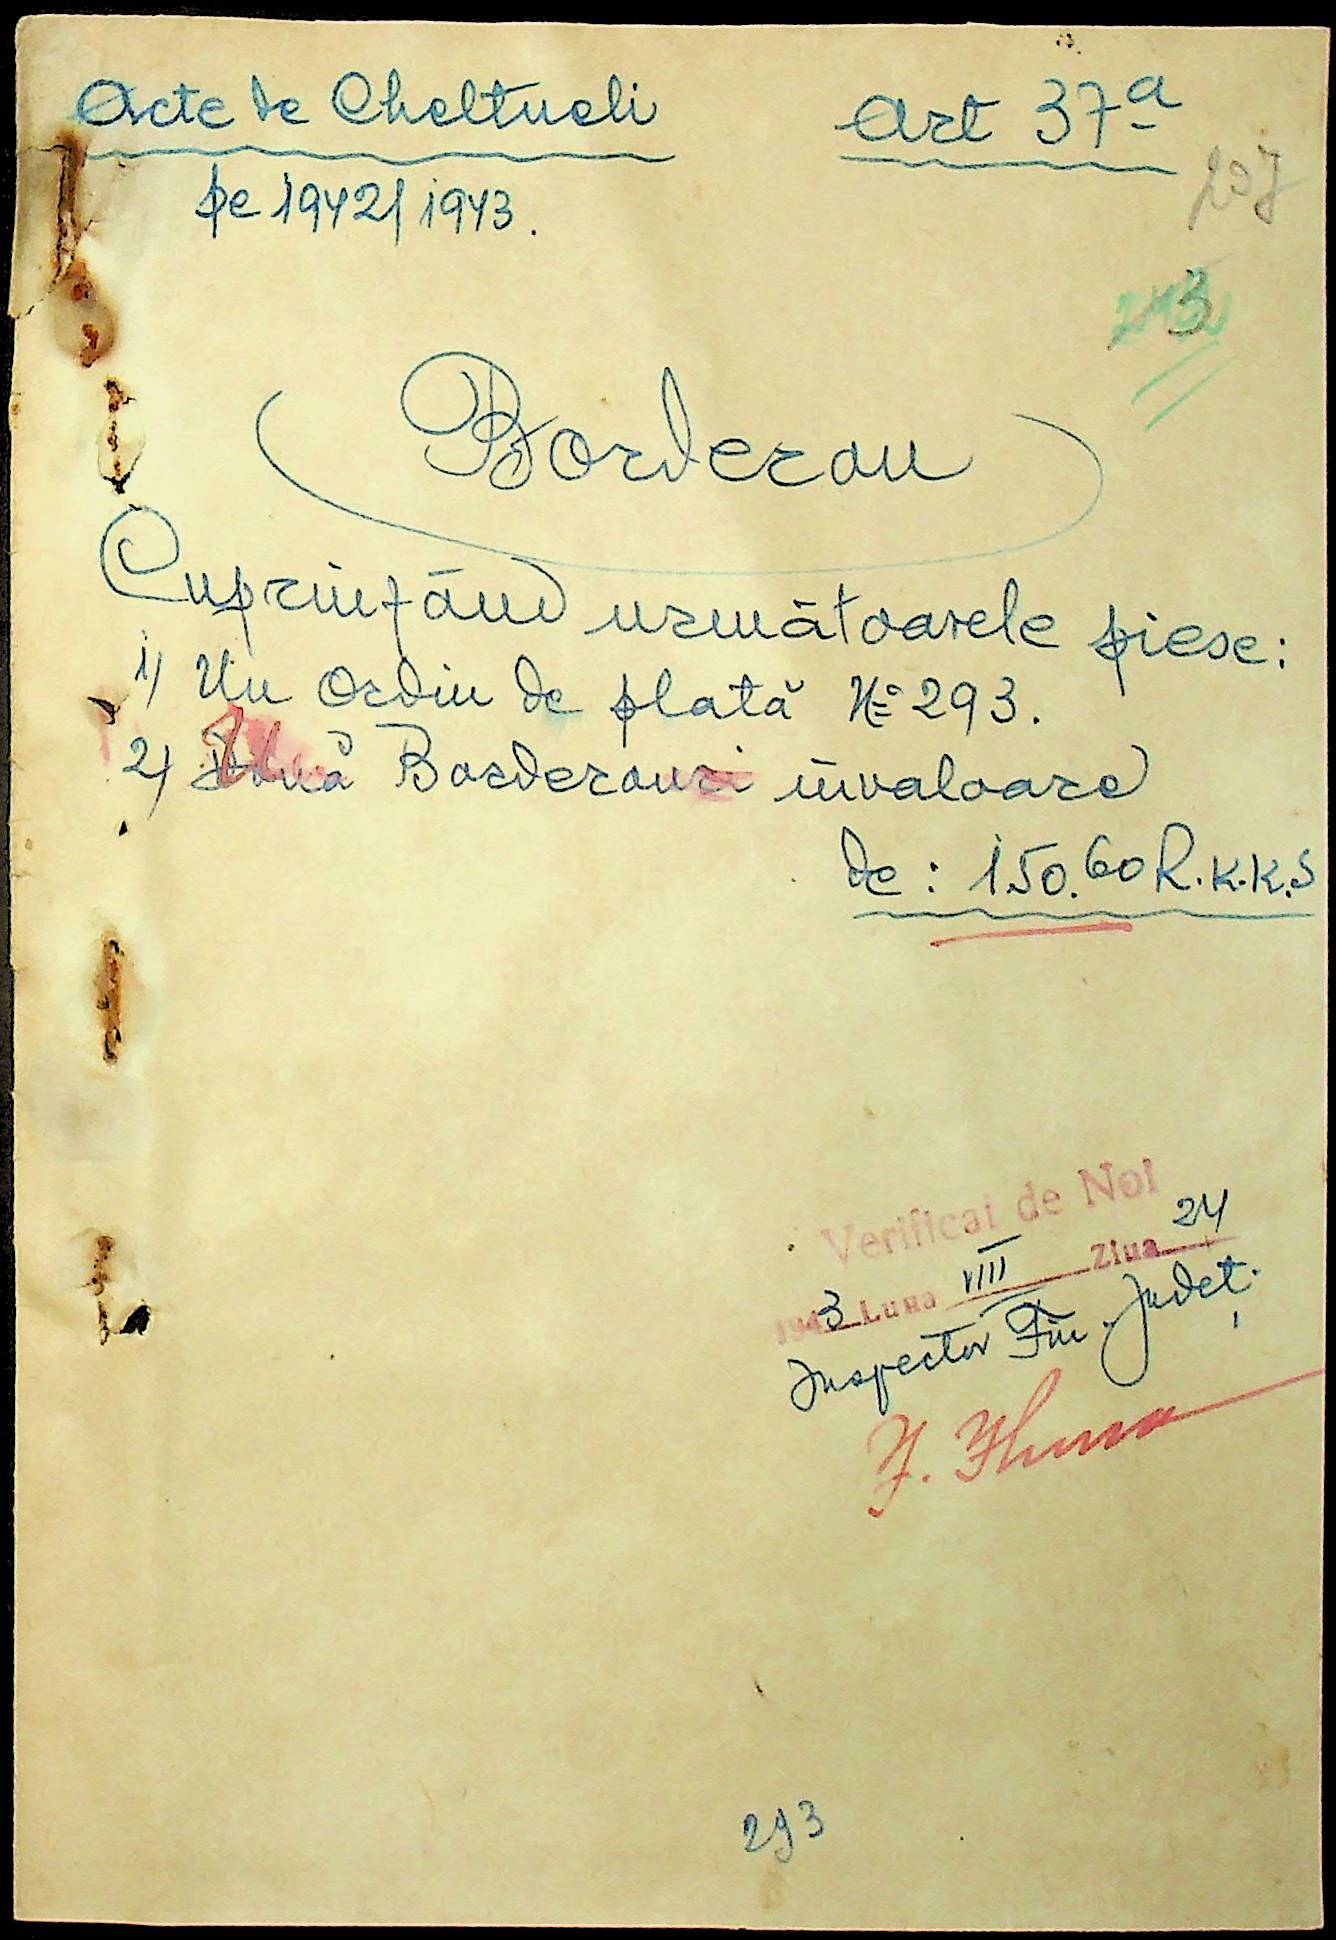 Acte de Cheltueli
Art 37a
pe 1942/1943.
Borderou
Cuprinzând următoarele piese:
1) Un Ordin de plată No 293.
2) Două Borderouri în valoare
de: 150.60 R.K.K.S
Verificat de Noi
1943 Luna VIII Ziua 24
Inspector Fin. Județ.
293